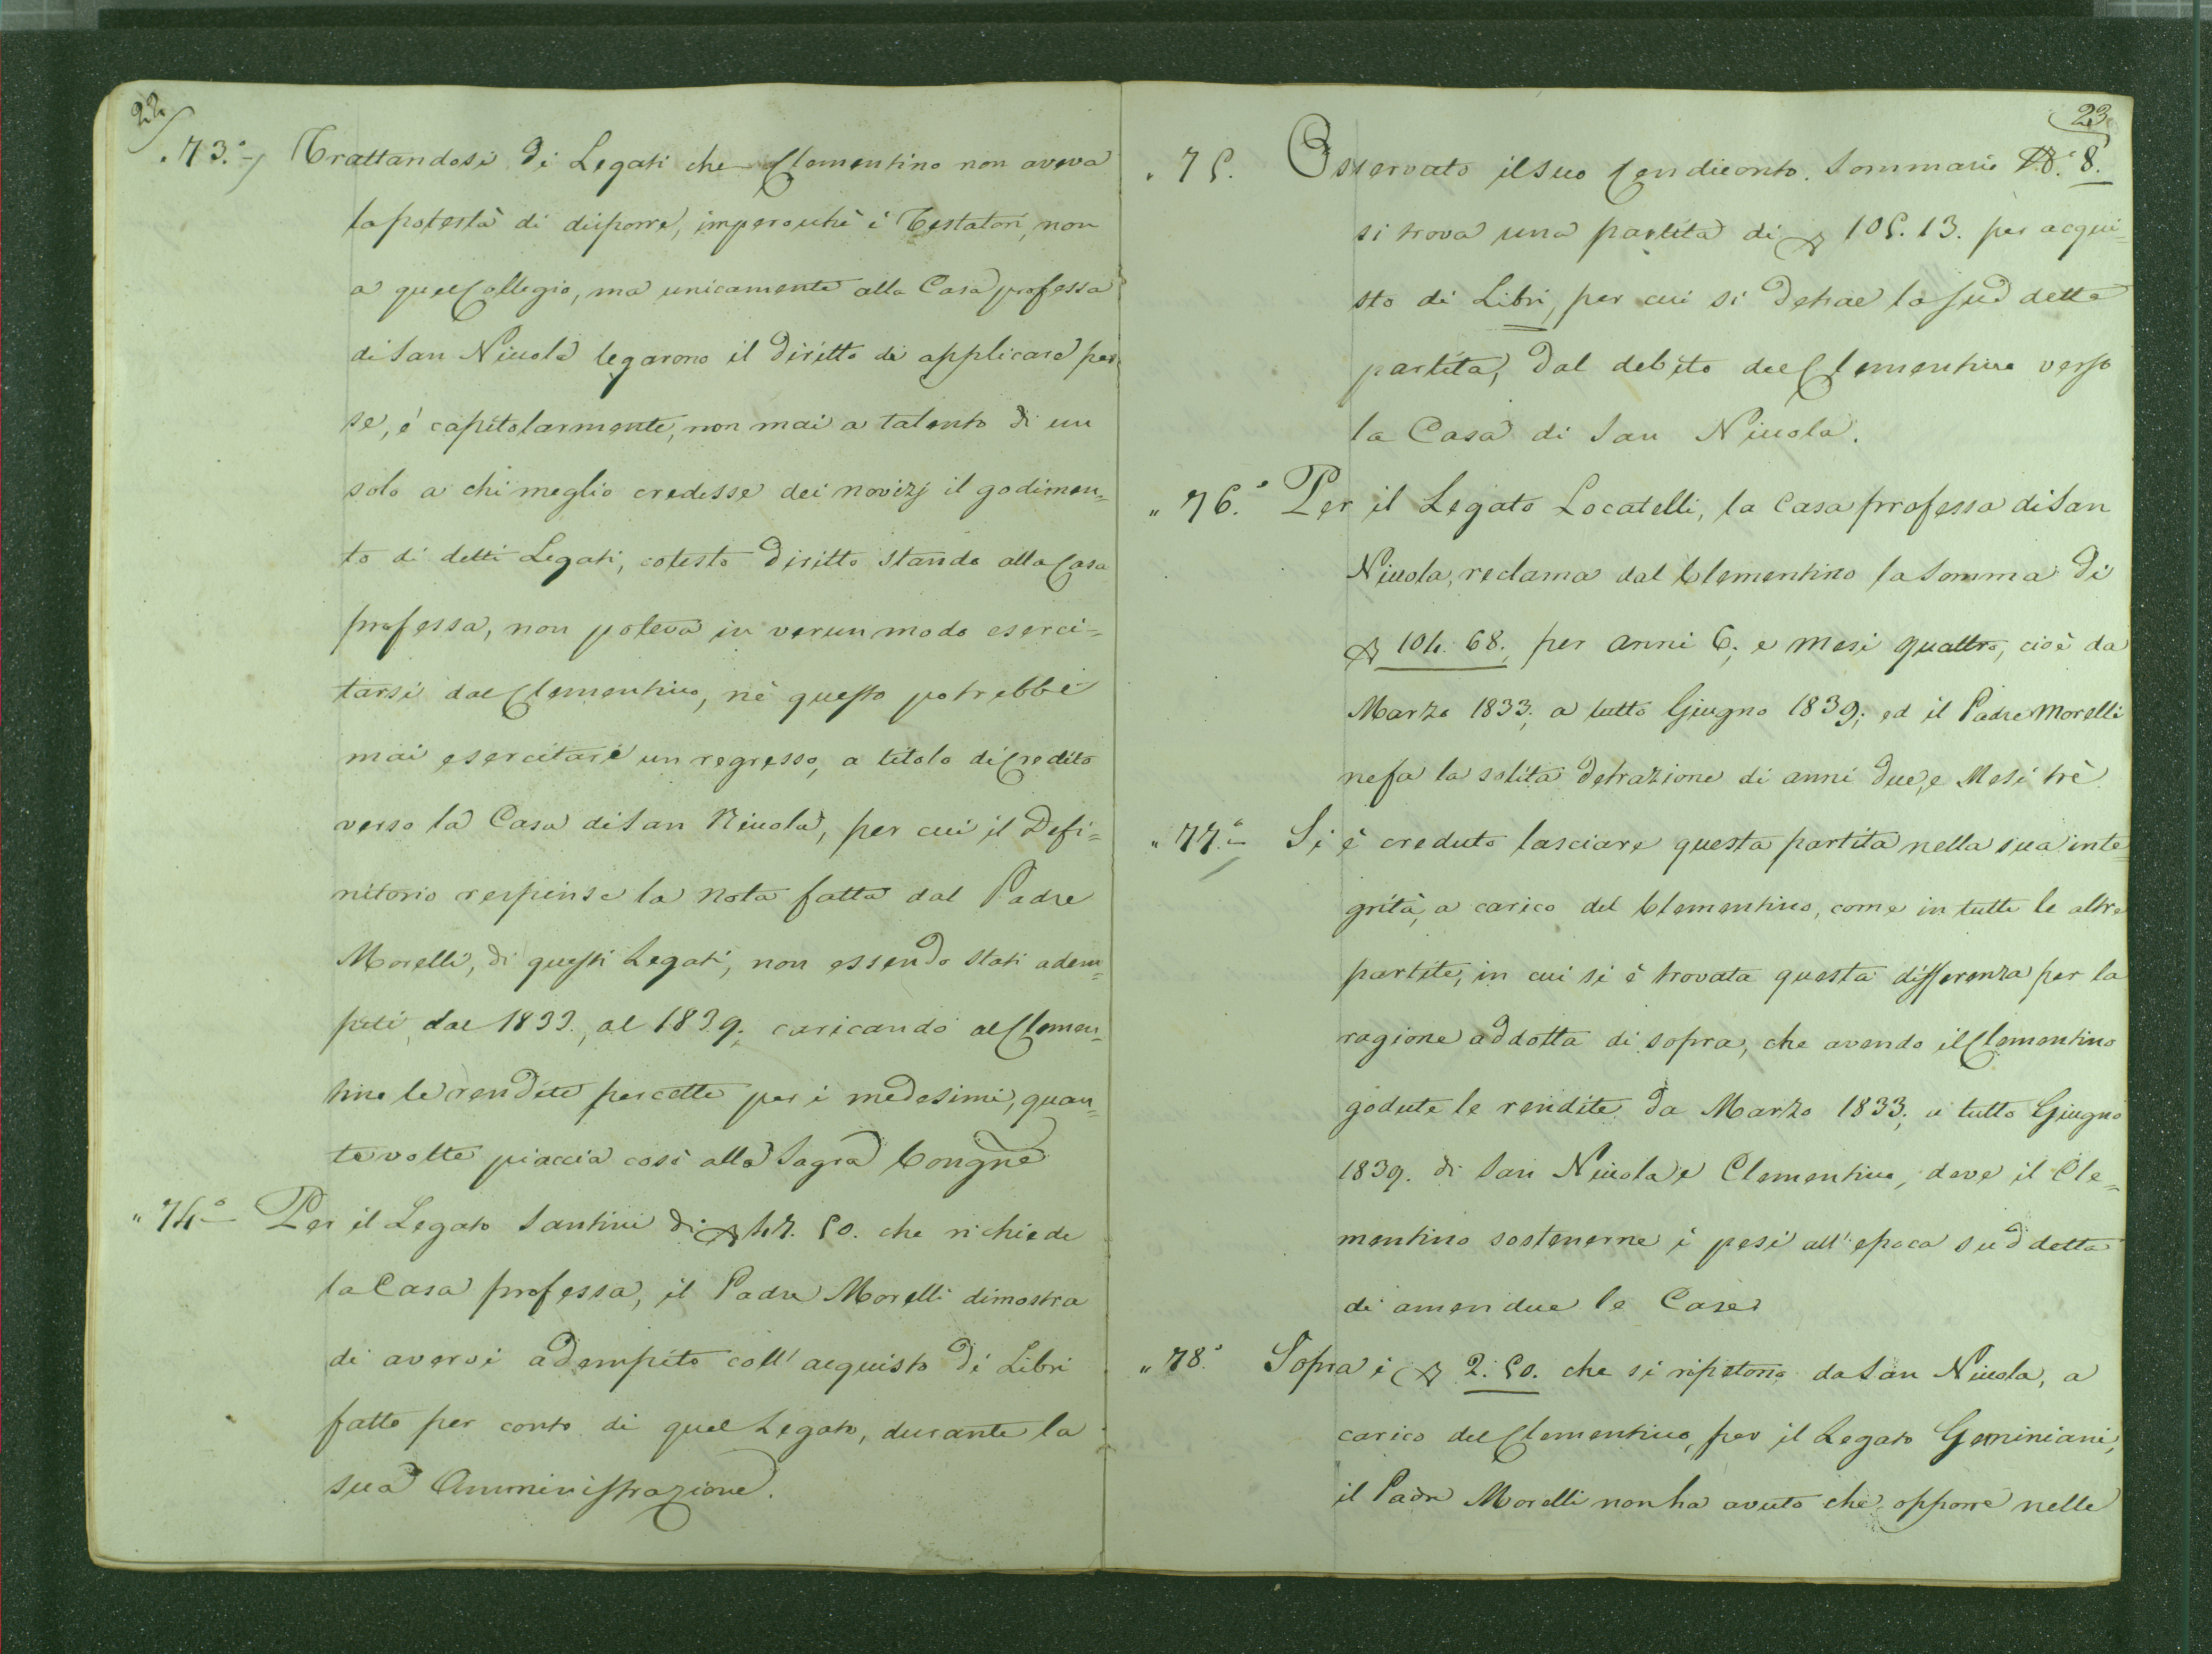 22
73.° Trattandosi di Legati che Clementino non aveva
la potestà di disporre, imperocchè i Testatori, non
a quel Collegio, ma unicamente alla Casa professa
di San Nicola legarono il diritto di applicare per
se, e capitolarmente, non mai a talento di un
solo a chi meglio credesse dei novizj il godimen=
to di detti Legati, cotesto diritto stando alla Casa
professa, non poteva in verun modo eserci=
tarsi dal Clementino, nè questo potrebbe
mai esercitare un regresso, a titolo di Credito
verso la Casa di San Nicola, per cui il Defi=
nitorio respinse la Nota fatta dal Padre
Morelli, di questi Legati, non essendo stati adem=
piti, dal 1833., al 1839., caricando al Clemen=
tino le rendite percette per i medesimi, quan=
te volte piaccia così alla Sagra Congne
" 74.° Per il Legato Santini di 47. 50. che richiede
la Casa professa, il Padre Morelli dimostra
di avervi adempito coll' acquisto di Libri
fatto per conto di quel Legato, durante la
sua Amministrazione.
23
" 75. Osservato il suo Rendiconto. Sommario N.° 8.
si trova una partita di 105. 13. per acqui=
sto di Libri, per cui si detrae la sud detta
partita, dal debito del Clementino verso
la Casa di San Nicola.
" 76.° Per il Legato Locatelli, la Casa professa di San
Nicola, reclama dal Clementino la Somma di
104. 68., per anni 6., e Mesi quattro, cioè da
Marzo 1833., a tutto Giugno 1839; ed il Padre Morelli
ne fa la solita detrazione di anni due, e Mesi trè
" 77.° Si è creduto lasciare questa partita nella sua inte=
grità, a carico del Clementino, come in tutte le altre
partite, in cui si è trovata questa differenza per la
ragione addotta di sopra, che avendo il Clementino
godute le rendite da Marzo 1833., a tutto Giugno
1839. di San Nicola e Clementino, deve il Cle=
mentino sostenerne i pesi all' epoca sud detta
di amendue le Case
" 78.° Sopra i 2. 50. che si ripetono da San Nicola, a
carico del Clementino, per il Legato Geminiani,
il Padre Morelli non ha avuto che opporre nelle